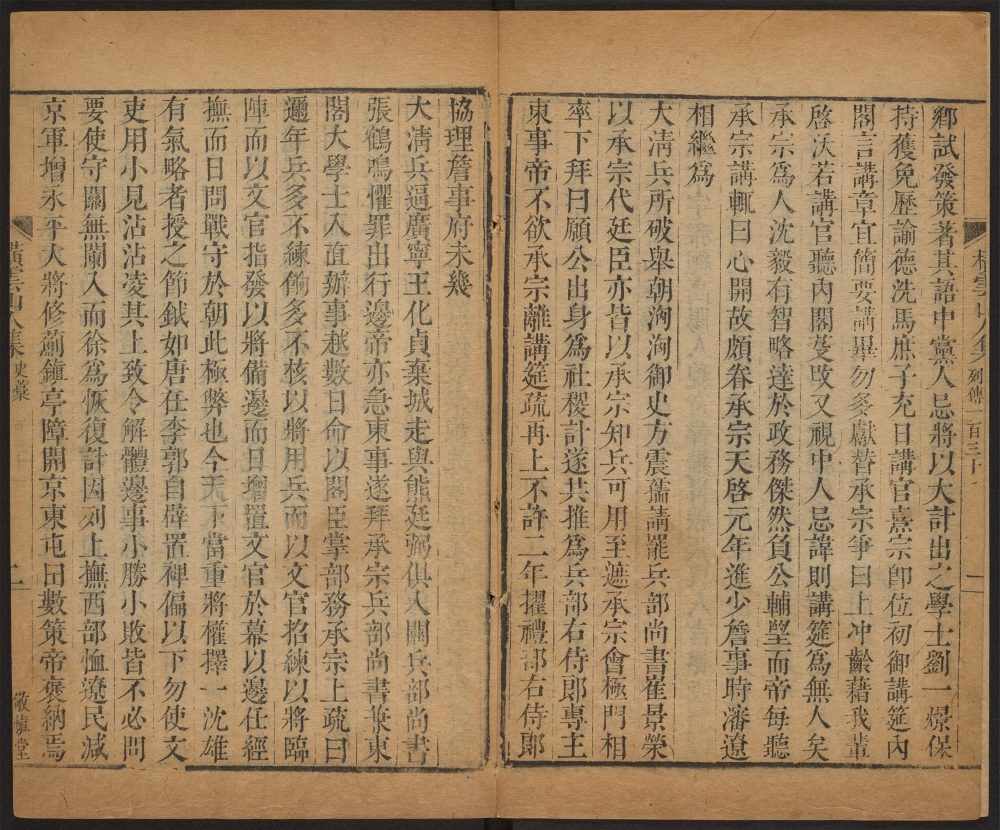 雲山人集 列傳一百三十 一
鄉試發策著其語中黨人忌將以大計出之學士劉一燝保
持獲免歷諭德洗馬庶子充日講官熹宗卽位初御講筵內
閣言講章宜簡要講畢勿多獻替承宗爭曰上冲齡藉我輩
啓沃若講官聽內閣芟改又視中人忌諱則講筵爲無人矣
承宗爲人沈毅有智略達於政務傑然負公輔望而帝每聽
承宗講輒曰心開故頗眷承宗天啓元年進少詹事時瀋遼
相繼爲
大淸兵所破舉朝洶洶御史方震孺請罷兵部尚書崔景榮
以承宗代廷臣亦皆以承宗知兵可用至遮承宗會極門相
率下拜曰願公出身爲社稷計遂共推爲兵部右侍郎專主
東事帝不欲承宗離講筵疏再上不許二年擢禮部右侍郎
協理詹事府未幾
大淸兵逼廣寧王化貞棄城走與熊廷弼俱入關兵部尚書
張鶴鳴懼罪出行邊帝亦急東事遂拜承宗兵部尚書兼東
閣大學士入直辦事越數日命以閣臣掌部務承宗上疏曰
邇年兵多不練餉多不核以將用兵而以文官招練以將臨
陣而以文官指發以將備邊而日增置文官於幕以邊任經
撫而日問戰守於朝此極弊也今天下當重將權擇一沈雄
有氣略者授之節鉞如唐任李郭自辟置裨偏以下勿使文
吏用小見沾沾凌其上致令解體邊事小勝小敗皆不必問
要使守關無闌入而徐爲恢復計因列上撫西部恤遼民減
京軍增永平大將修薊鎮亭障開京東屯田數策帝褒納焉
橫雲山人集 史藁 二 敬愼堂